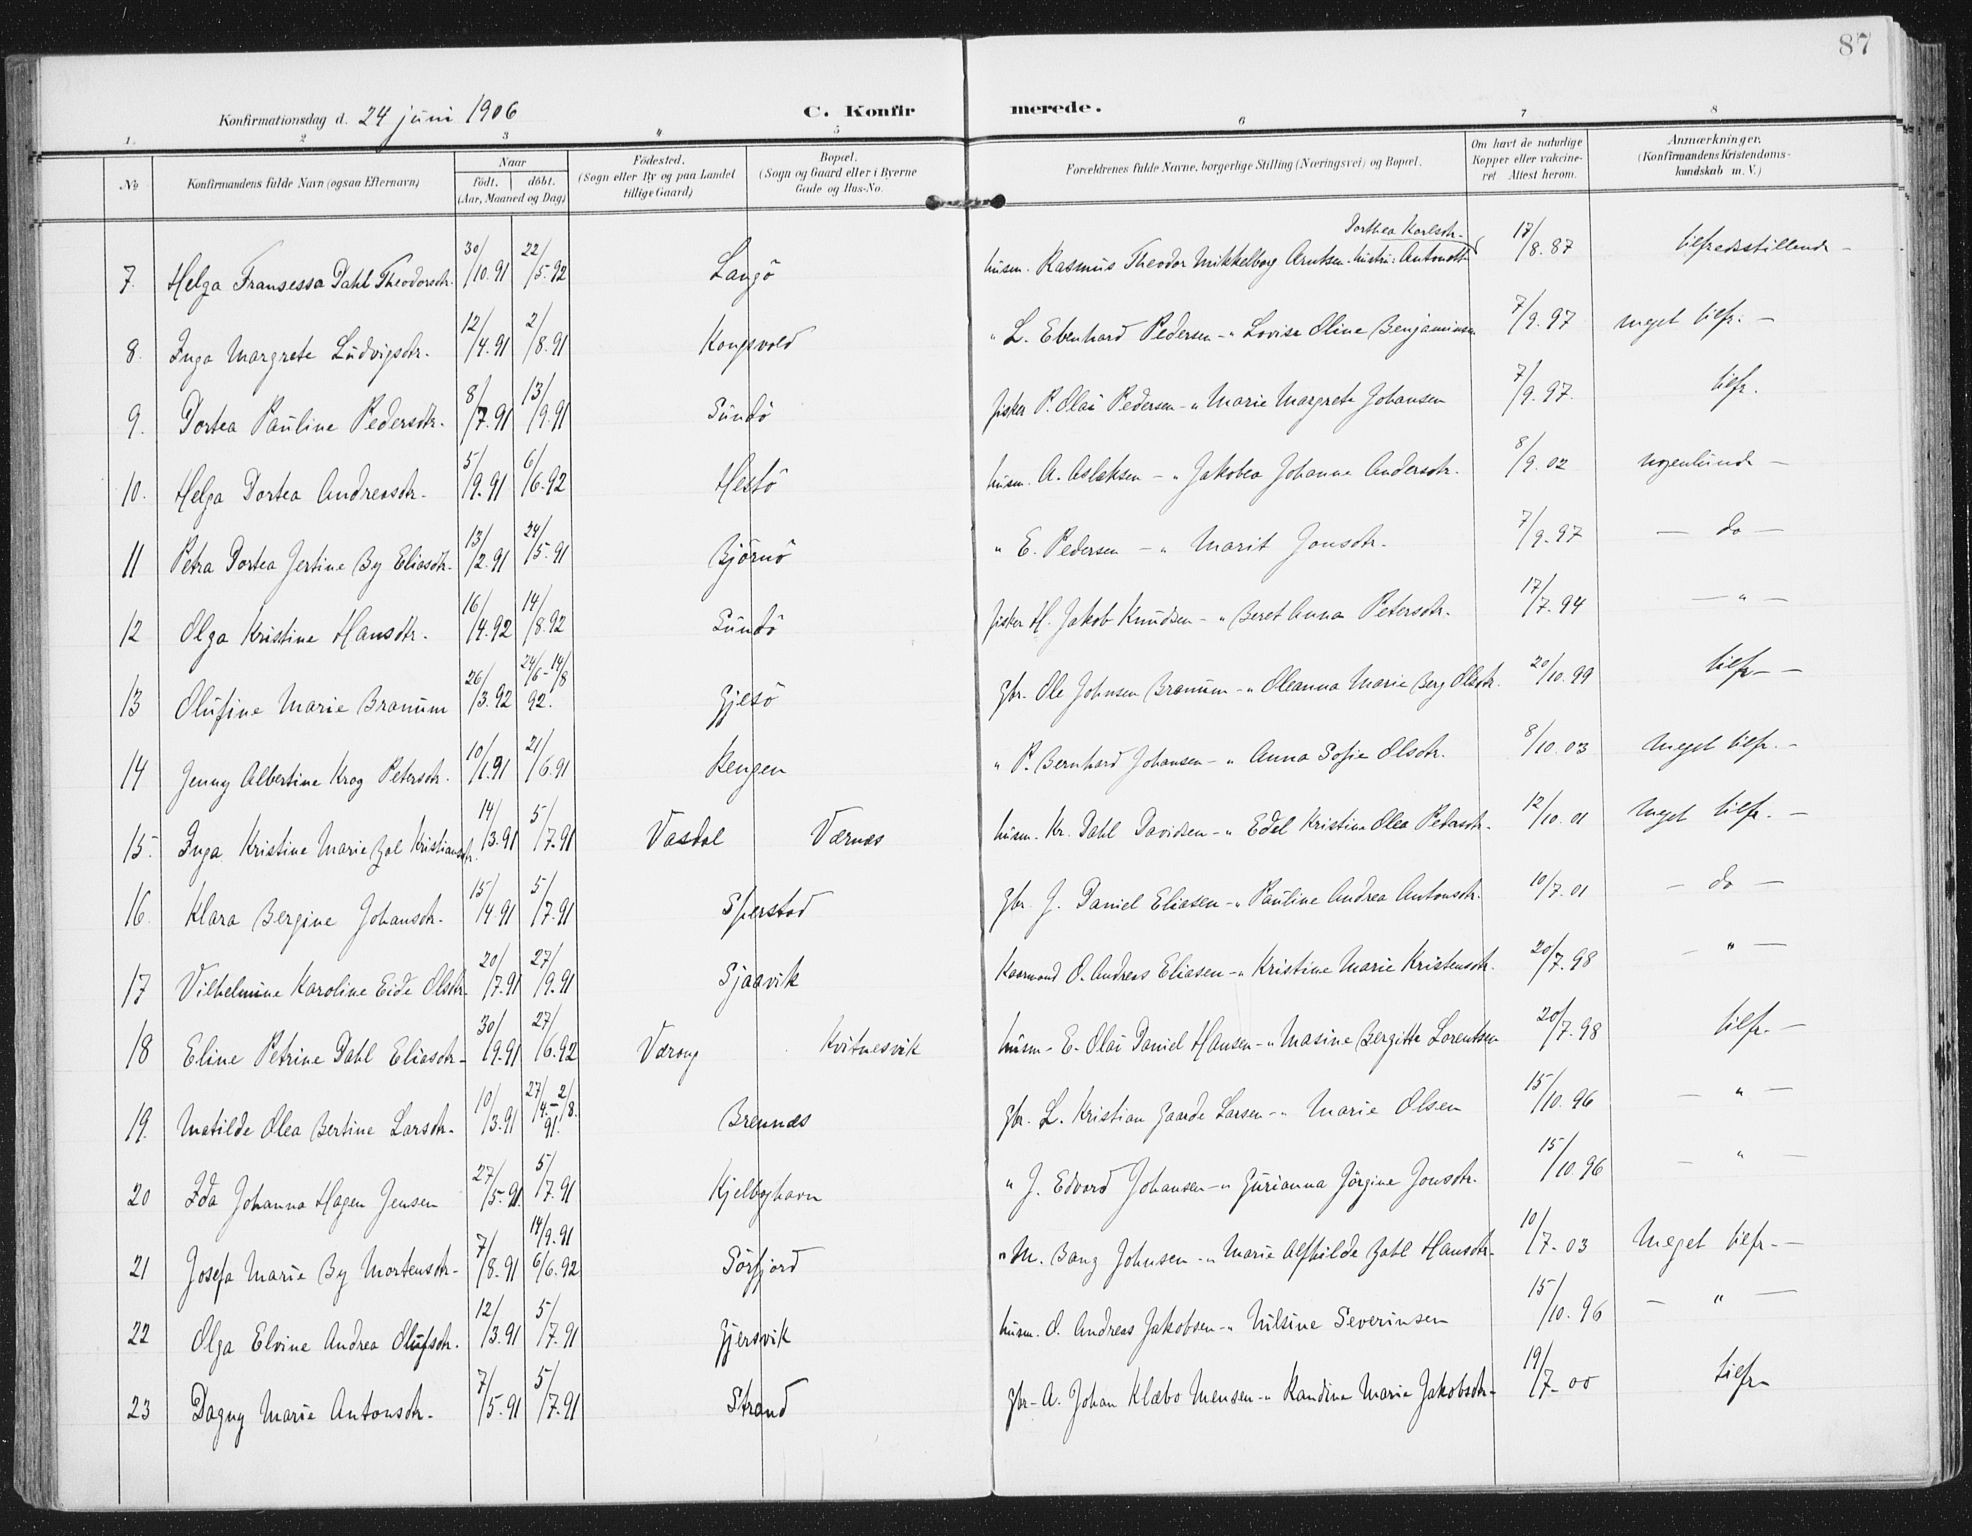 87
Konfirmationsdag d. 24 juni 1906 C. Konfirmerede.
1. 2 3 " 5 6 7 8
№ Konfirmandens fulde Navn (ogsaa Efternavn) Naar født. døbt. (Aar, Maaned og Dag) Fødested. (Sogn eller By og paa Landet tillige Gaard) Bopæl. (Sogn og Gaard eller i Byerne Gade og Hus-No. Forældrenes fulde Navne, borgerlige Stilling (Næringsvei) og Bopæl. Om havt de naturlige Kopper eller vakcineret Attest herom. Anmærkninger. (Konfirmandens Kristendomskundskab m. V.)
7. Helga Fransessa Dahl Theodorsdtr. 30/10.91 22/5.92 Langö husm. Rasmus Theodor Mikkelborg Arntsen - hustru: Antonette Dorthea Karlsdtr. 17/8.87 tilfredsstillende -
8. Inga Margrete Ludvigsdtr. 12/4.91 2/8.91 Kongsvold " L. Ebenhard Pedersen - " Lovise Oline Benjaminsen 7/9.97 meget tilfr. -
9. Dortea Pauline Pedersdtr. 8/7.91 13/9.91 Sundö fisker P. Olai Pedersen - " Marie Margrete Johansen 7/9.97. tilfr.
10. Helga Dortea Andreasdtr. 5/9.91 6/6.92 Hestö husm. A. Aslaksen - " Jakobea Johanna Andersdtr. 8/9.02 nogenlunde -
11 Petra Dortea Jertine By Eliasdtr. 13/2.91 24/5.91 Björnö " E. Pedersen - " Marit Jonsdtr. 7/9.97 - do -
12 Olga Kristine Hansdtr. 16/4.92 14/8.92 Sundö fisker H. Jakob Knudsen - " Beret Anna Petersdtr. 17/7.94 - " -
13 Olufine Marie Branum 26/3.92 24/6-14/8 92. Gjesö gbr. Ole Johnsen Branum - " Oleanna Marie Berg Olsdtr. 20/10.99 tilfr. -
14 Jenny Albertine Krog Petersdtr. 10/1.91 21/6.91 Rengen " P. Bernhard Johansen - " Anna Sofie Olsdtr. 8/10.03 Meget tilfr. -
15. Inga Kristine Marie Zal Kristiansdtr. 14/3.91 5/7.91 Vasdal Værnes husm. Kr. Dahl Davidsen - " Edel Kristine Olea Pedersdtr. 12/10.01 Meget tilfr. -
16. Klara Bergine Johansdtr. 15/4.91 5/7.91 Sperstad gbr. J. Daniel Eliasen - " Pauline Andrea Antonsdtr. 10/7.01 - do -
17 Vilhelmine Karoline Eide Olsdtr. 20/7.91 27/9.91 Sjaavik Kaarmand O. Andreas Eliasen - " Kristine Marie Kristensdtr. 20/7.98 - " -
18 Eline Petrine Dahl Eliasdtr. 30/9.91 27/6.92 Værøy Kvitnesvik husm. E. Olai Daniel Hansen - " Masine Bergitte Lorentsen 20/7.98 tilfr. -
19. Matilde Olea Bertine Larsdtr. 10/3.91 27/4-2/8. 91. Brennæs gbr. L. Kristian Gaarde Larsen - " Marie Olsen 15/10.96 - " -
20 Ida Johanna Hagen Jensen 27/5.91. 5/7.91 Kjelbøghavn " J. Edvard Johansen - " Gurianna Jörgine Jonsdtr. 15/10.96 - " -
21 Josefa Marie By Mortensdtr. 7/8.91 14/9.91 6/6.92 Sörfjord " M. Bang Johnsen - " Marie Alfhilde Zahl Hansdtr. 10/7-03 Meget tilfr. -
22 Olga Elvine Andrea Olufsdtr. 12/3.91 5/7.91 Gjersvik husm. O. Andreas Jakobsen - " Nilsine Severinsen 15/10.96 - " -
23 Dagny Marie Antonsdtr. 7/5.91 5/7.91 Strand gbr. A. Johan Klæbo Mensen - " Randine Marie Jakobsdtr. 19/7-00 tilfr.